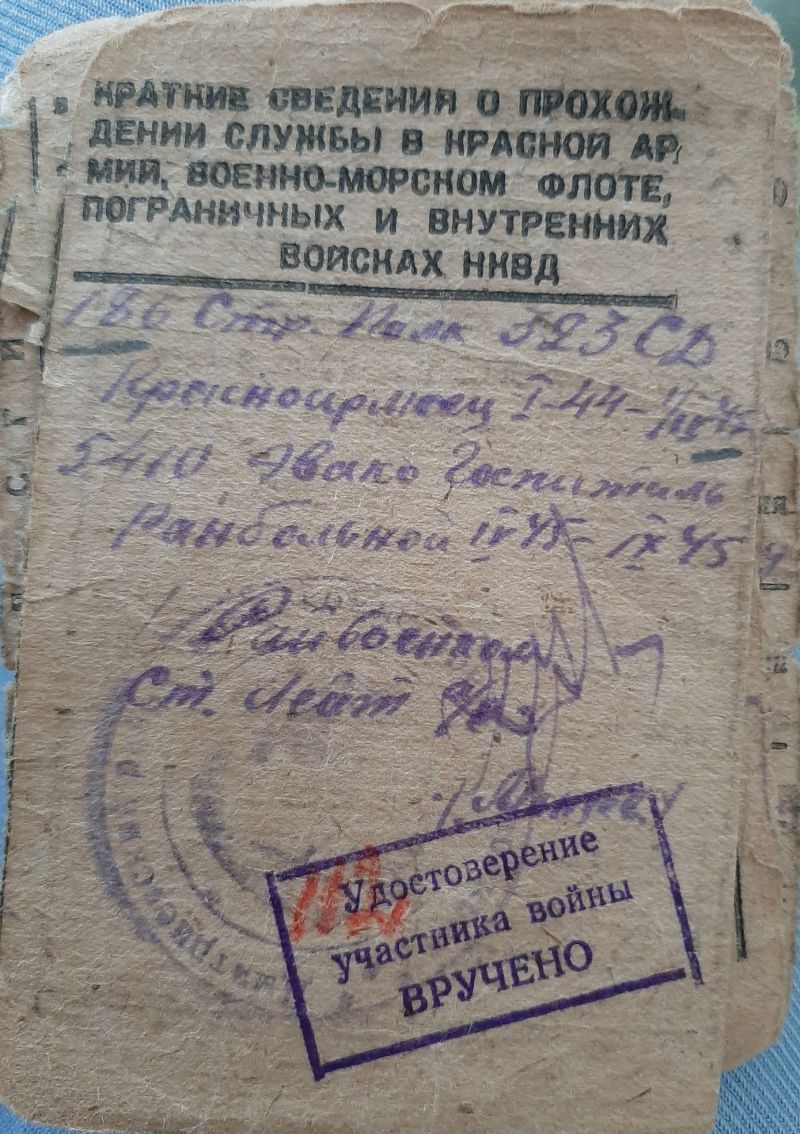 КРАТКИЕ СВЕДЕНИЯ О ПРОХОЖ-
ДЕНИИ СЛУЖБЫ В КРАСНОЙ АР
МИИ, ВОЕННО-МОРСКОМ ФЛОТЕ,
ПОГРАНИЧНЫХ И ВНУТРЕННИХ
ВОЙСКАХ НКВД
186 Стр. Полк 323 СД
Красноармеец I-44-
5410 Эвако Госпиталь
Ранбольной IV 45 - IX 45
Райвоенком
Ст. Лейт
112
Удостоверение
участника войны
ВРУЧЕНО